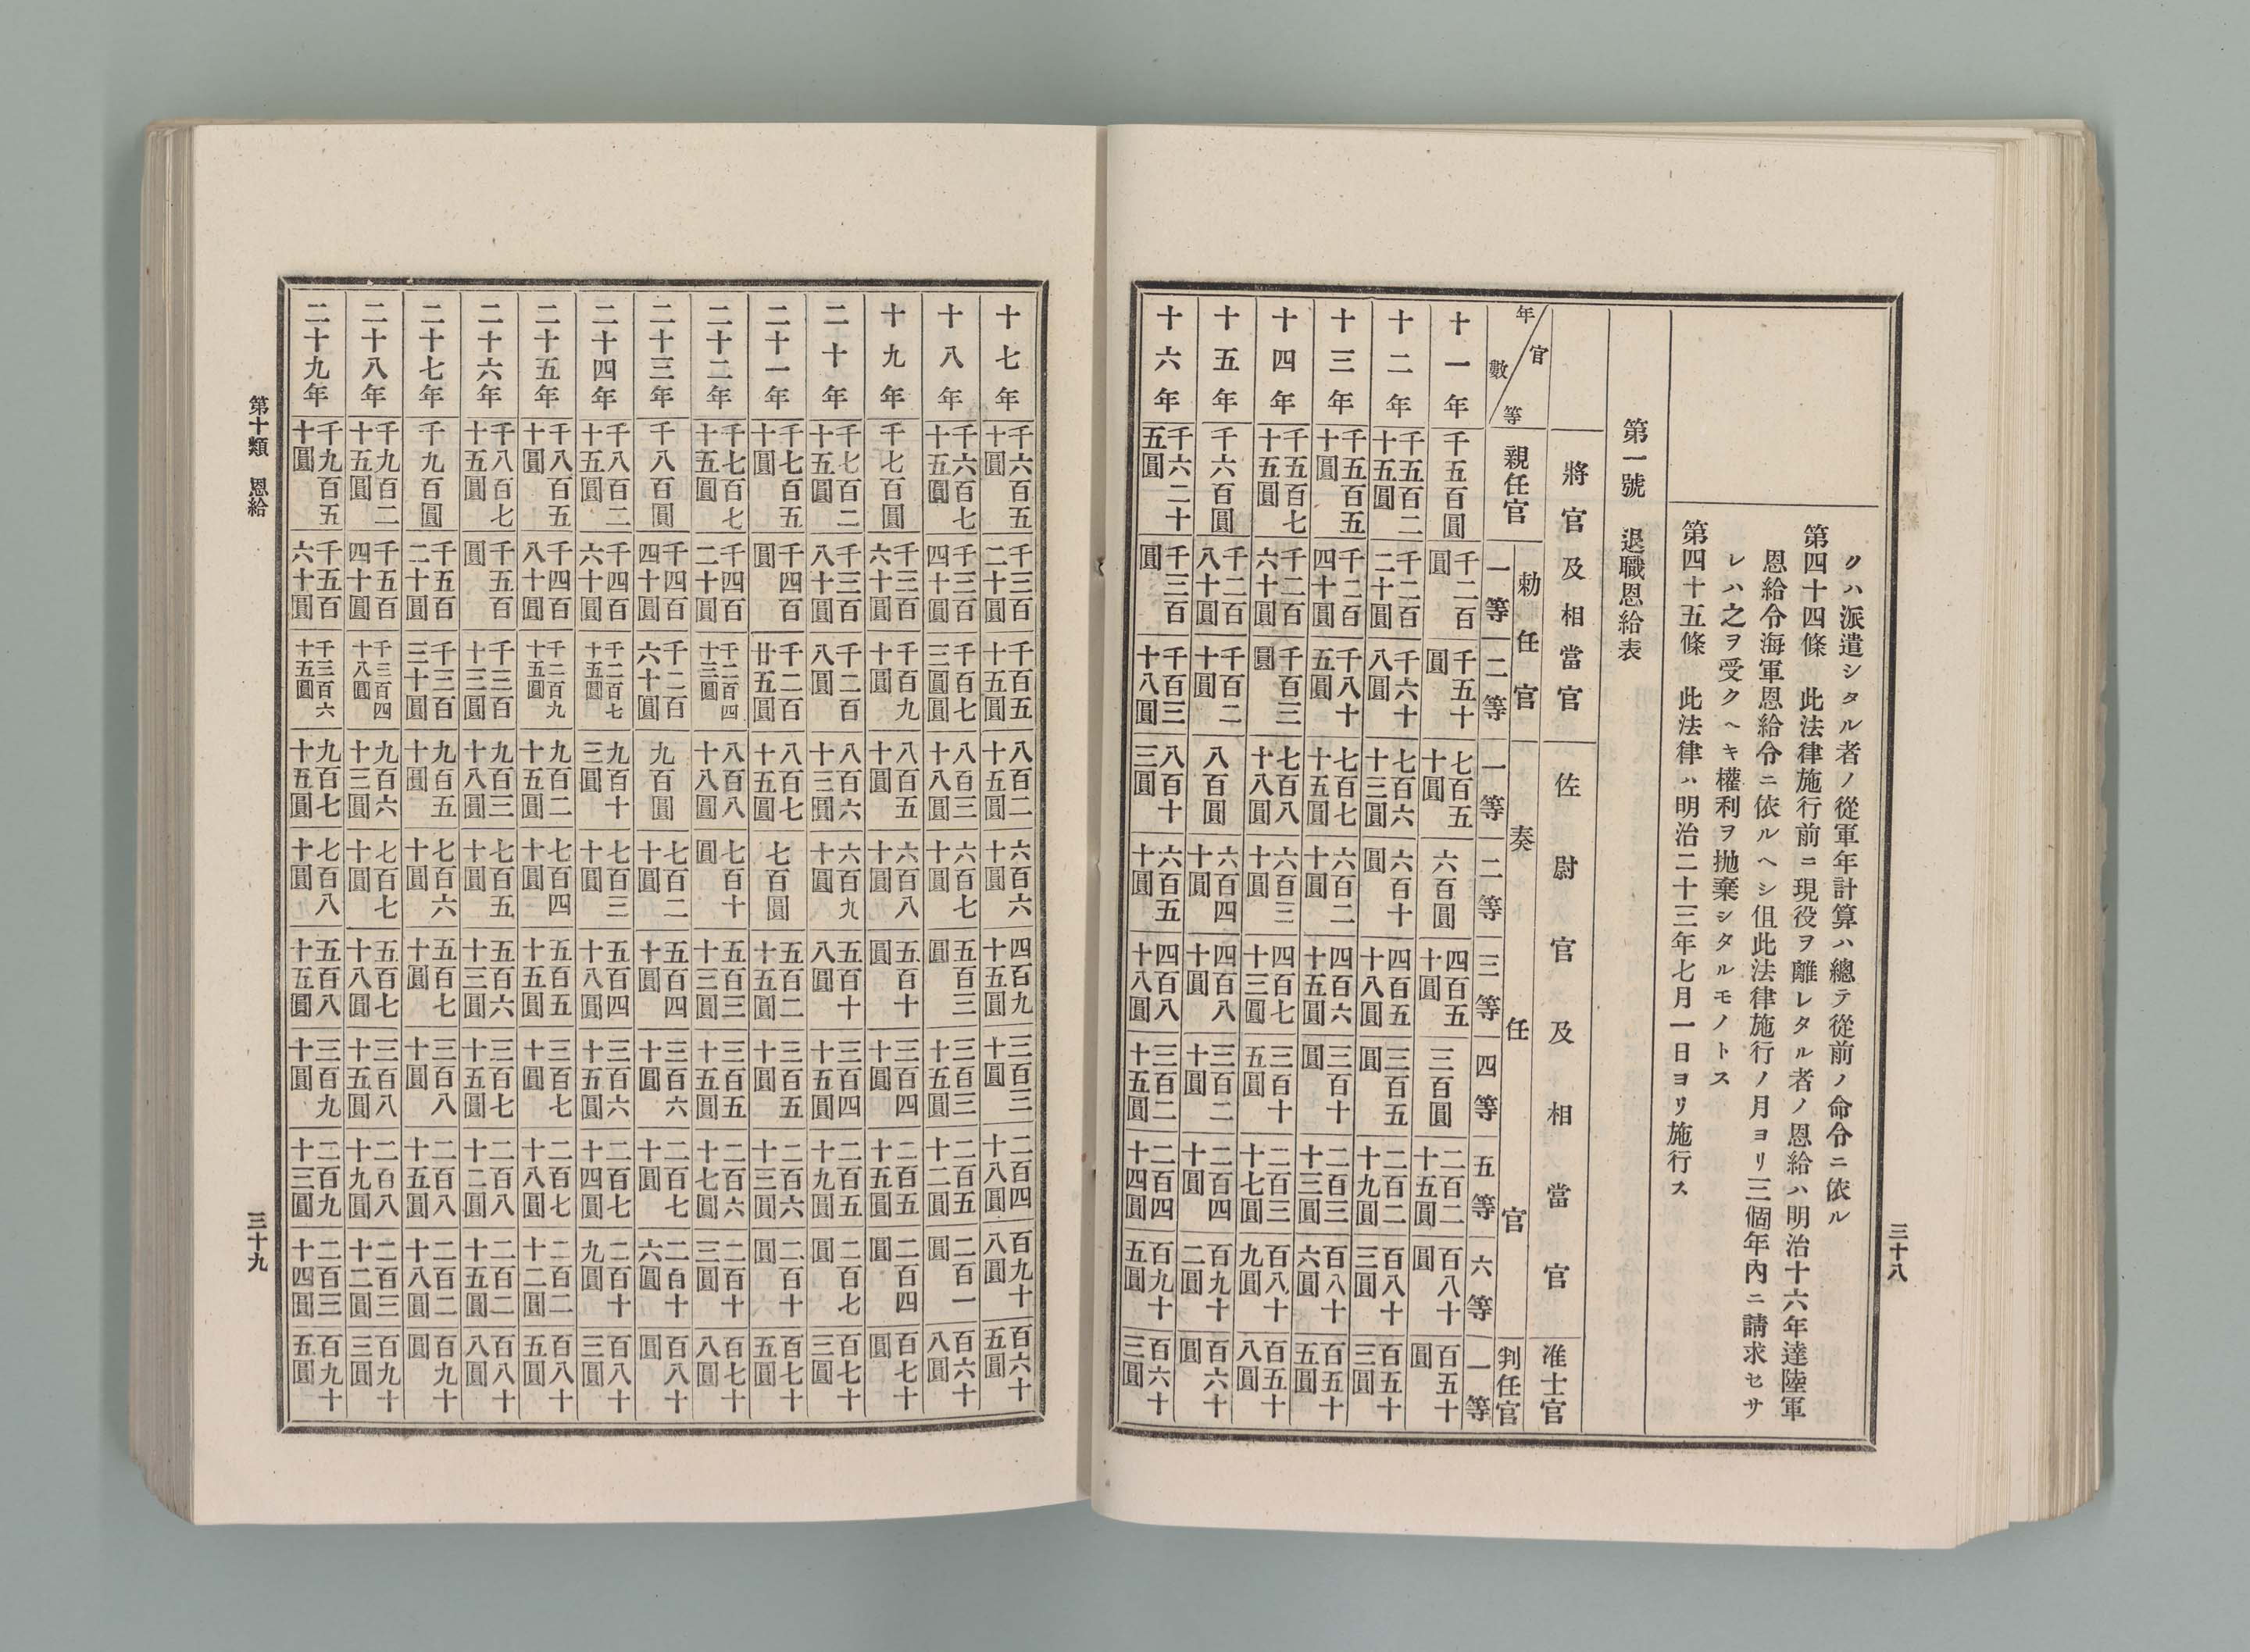 三十八
クハ派遣シタル者ノ從軍年計算ハ總テ從前ノ命令ニ依ル
第四十四條 此法律施行前ニ現役ヲ離レタル者ノ恩給ハ明治十六年達陸軍
恩給令海軍恩給令ニ依ルヘシ但此法律施行ノ月ヨリ三個年內ニ請求セサ
レハ之ヲ受クヘキ權利ヲ抛棄シタルモノトス
第四十五條 此法律ハ明治二十三年七月一日ヨリ施行ス
第一號 退職恩給表
將官及相當官 佐尉官及相當官 准士官
年數 官等 親任官 勅任官 奏任官 判任官
一等 二等 一等 二等 三等 四等 五等 六等 一等
十一年 千五百圓 千二百圓 千五十圓 七百五十圓 六百圓 四百五十圓 三百圓 二百二十五圓 百八十圓 百五十圓
十二年 千五百二十五圓 千二百二十圓 千六十八圓 七百六十三圓 六百十圓 四百五十八圓 三百五圓 二百二十九圓 百八十三圓 百五十三圓
十三年 千五百五十圓 千二百四十圓 千八十五圓 七百七十五圓 六百二十圓 四百六十五圓 三百十圓 二百三十三圓 百八十六圓 百五十五圓
十四年 千五百七十五圓 千二百六十圓 千百三圓 七百八十八圓 六百三十圓 四百七十三圓 三百十五圓 二百三十七圓 百八十九圓 百五十八圓
十五年 千六百圓 千二百八十圓 千百二十圓 八百圓 六百四十圓 四百八十圓 三百二十圓 二百四十圓 百九十二圓 百六十圓
十六年 千六二十五圓 千三百圓 千百三十八圓 八百十三圓 六百五十圓 四百八十八圓 三百二十五圓 二百四十四圓 百九十五圓 百六十三圓
十七年 千六百五十圓 千三百二十圓 千百五十五圓 八百二十五圓 六百六十圓 四百九十五圓 三百三十圓 二百四十八圓 百九十八圓 百六十五圓
十八年 千六百七十五圓 千三百四十圓 千百七三圓圓 八百三十八圓 六百七十圓 五百三圓 三百三十五圓 二百五十二圓 二百一圓 百六十八圓
十九年 千七百圓 千三百六十圓 千百九十圓 八百五十圓 六百八十圓 五百十圓 三百四十圓 二百五十五圓 二百四圓 百七十圓
二十年 千七百二十五圓 千三百八十圓 千二百八圓 八百六十三圓 六百九十圓 五百十八圓 三百四十五圓 二百五十九圓 二百七圓 百七十三圓
二十一年 千七百五十圓 千四百圓 千二百廿五圓 八百七十五圓 七百圓 五百二十五圓 三百五十圓 二百六十三圓 二百十圓 百七十五圓
二十二年 千七百七十五圓 千四百二十圓 千二百四十三圓 八百八十八圓 七百十圓 五百三十三圓 三百五十五圓 二百六十七圓 二百十三圓 百七十八圓
二十三年 千八百圓 千四百四十圓 千二百六十圓 九百圓 七百二十圓 五百四十圓 三百六十圓 二百七十圓 二百十六圓 百八十圓
二十四年 千八百二十五圓 千四百六十圓 千二百七十五圓 九百十三圓 七百三十圓 五百四十八圓 三百六十五圓 二百七十四圓 二百十九圓 百八十三圓
二十五年 千八百五十圓 千四百八十圓 千二百九十五圓 九百二十五圓 七百四十圓 五百五十五圓 三百七十圓 二百七十八圓 二百二十二圓 百八十五圓
二十六年 千八百七十五圓 千五百圓 千三百十三圓 九百三十八圓 七百五十圓 五百六十三圓 三百七十五圓 二百八十二圓 二百二十五圓 百八十八圓
二十七年 千九百圓 千五百二十圓 千三百三十圓 九百五十圓 七百六十圓 五百七十圓 三百八十圓 二百八十五圓 二百二十八圓 百九十圓
二十八年 千九百二十五圓 千五百四十圓 千三百四十八圓 九百六十三圓 七百七十圓 五百七十八圓 三百八十五圓 二百八十九圓 二百三十二圓 百九十三圓
二十九年 千九百五十圓 千五百六十圓 千三百六十五圓 九百七十五圓 七百八十圓 五百八十五圓 三百九十圓 二百九十三圓 二百三十四圓 百九十五圓
第十類 恩給
三十九